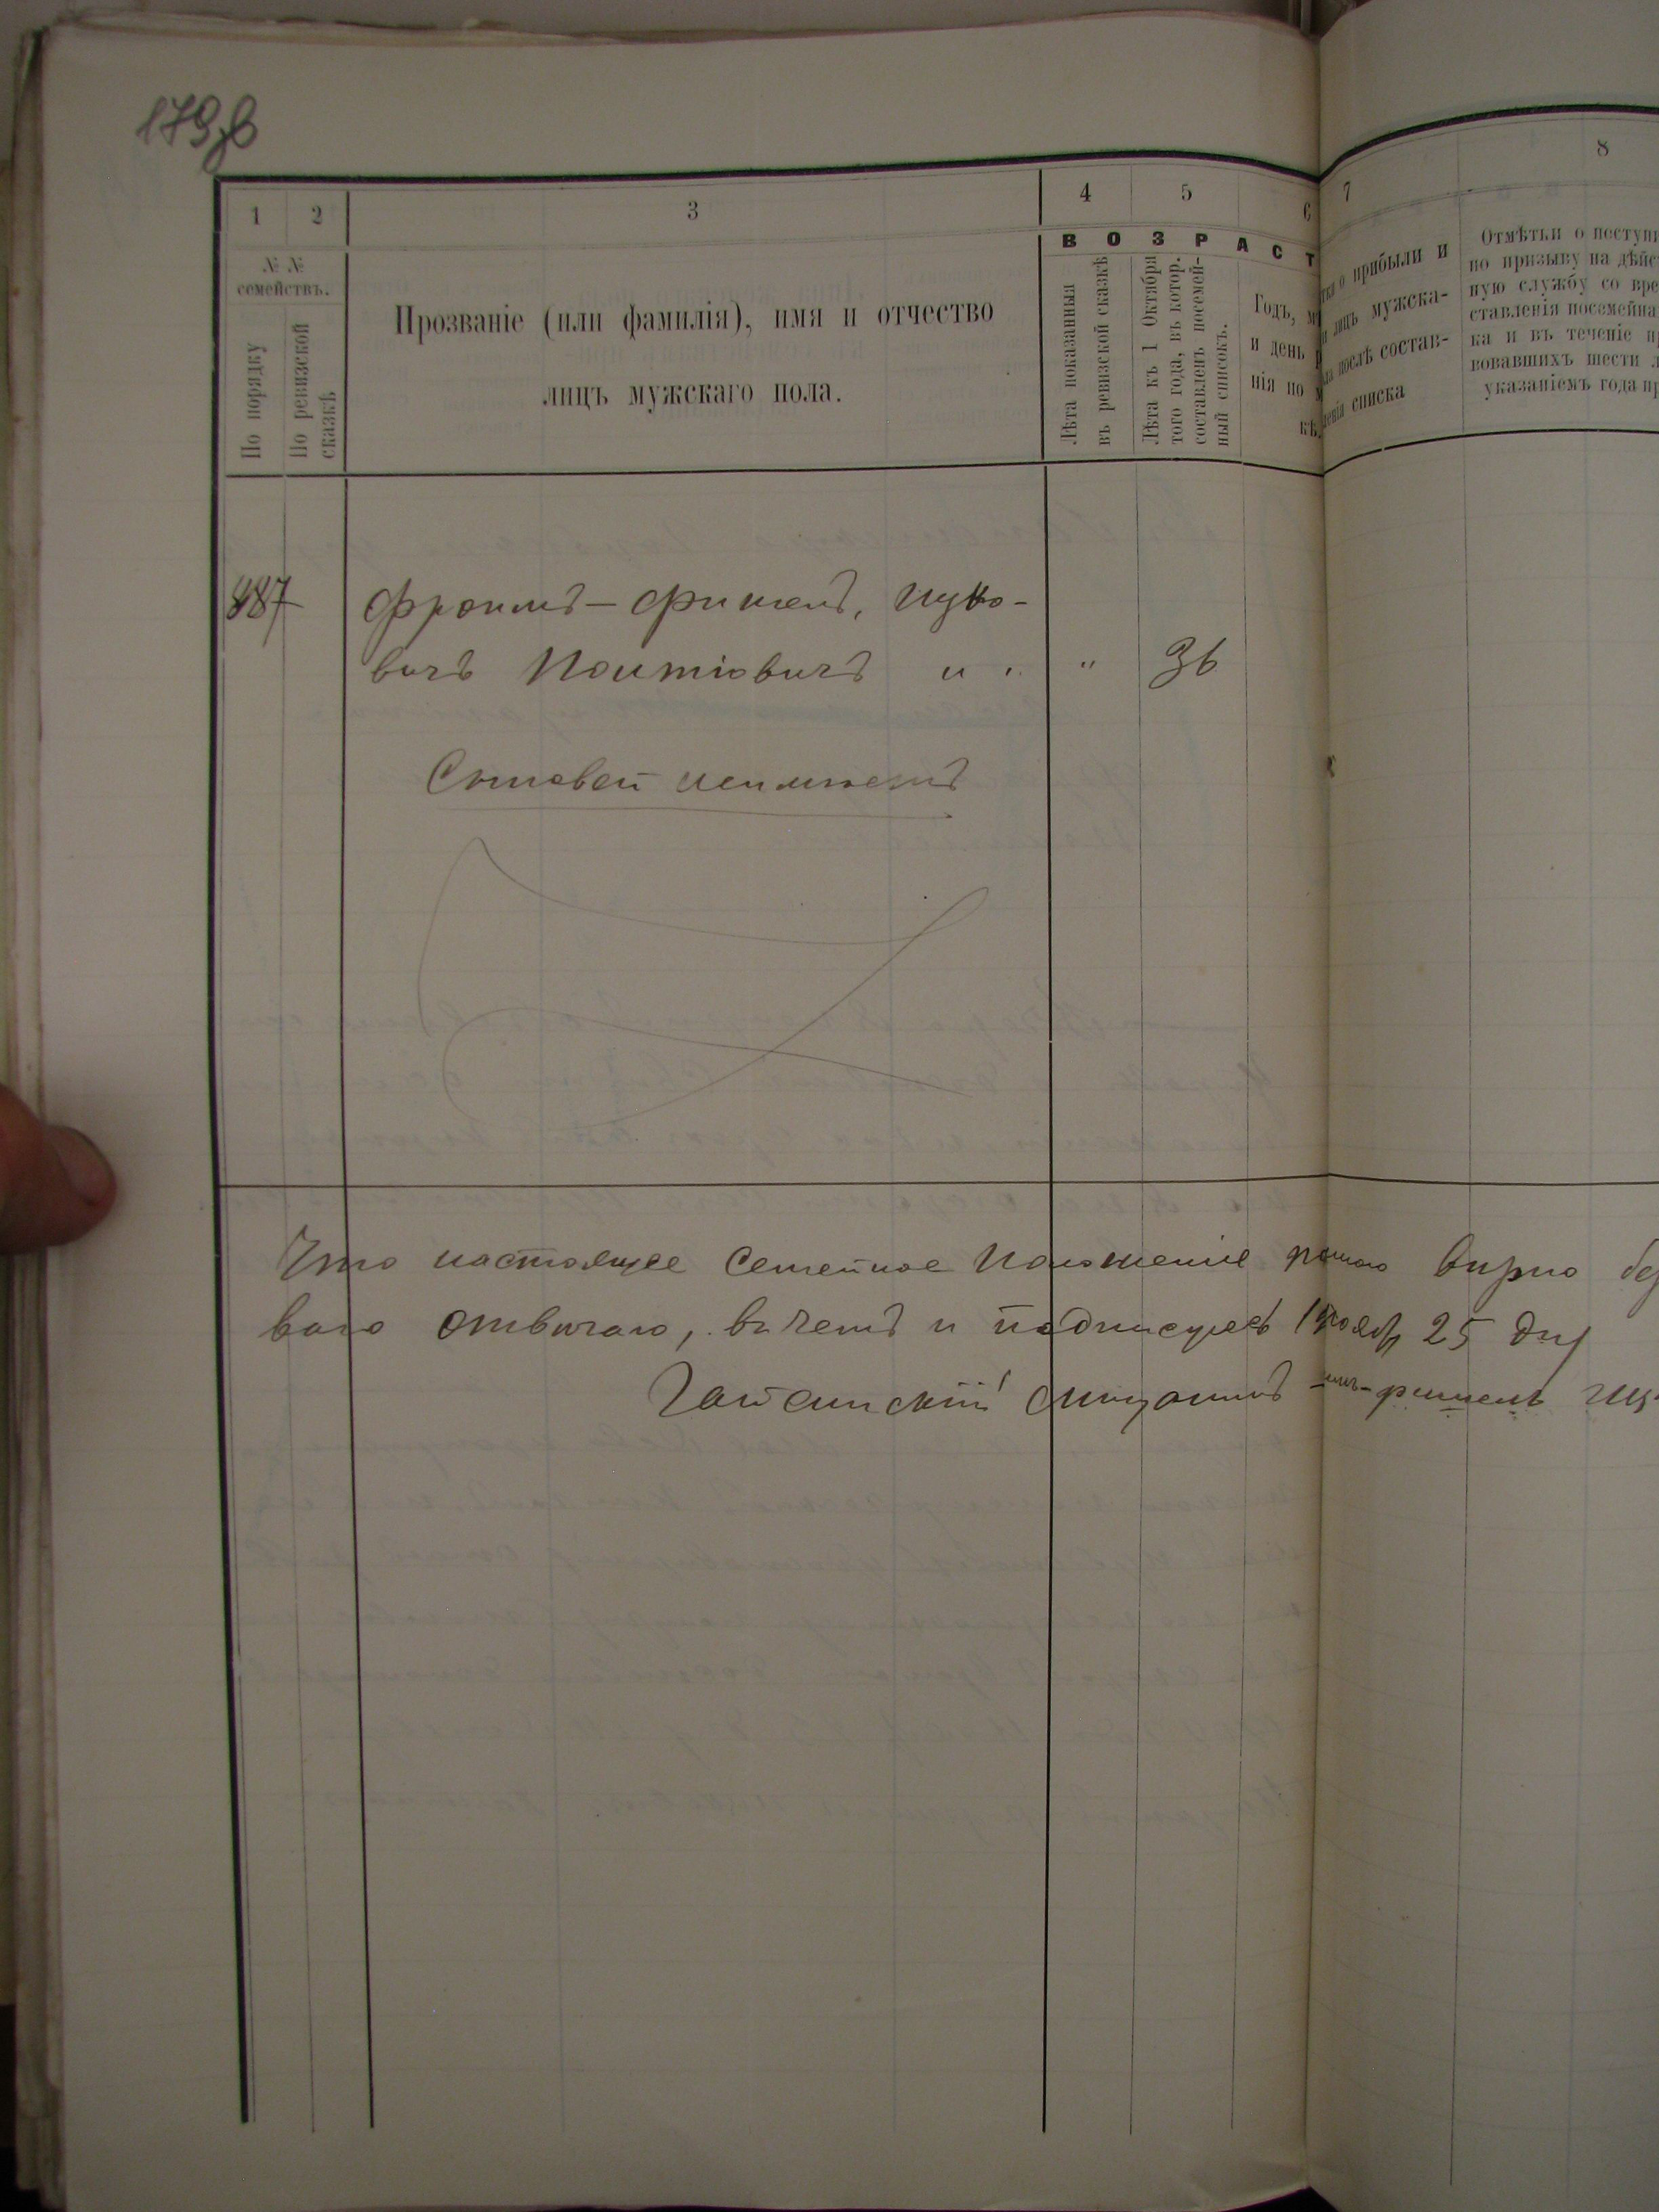 179 об
1 2 3 4 5 6 7 8
№ №
семействъ.
По порядку
По ревизской
сказкѣ
Прозваніе (или фамилія), имя и отчество
лицъ мужскаго пола.
ВОЗРАСТ
Лѣта показанныя
въ ревизской сказкѣ
Лѣта къ 1 Октября
того года, въ котор.
составленъ посемей-
ный списокъ.
Годъ, м
и день р
нія по м
кѣ.
о прибыли и
лицъ мужска-
послѣ состав-
списка
Отмѣтки о поступи
по призыву на дѣйс
ную службу со вре
ставленія посемейна
ка и въ теченіе п
вовавшихъ шести л
указаніемъ года пр
887
Фроимъ-Фишель, Ицко-
вичъ
36
Сыновей неимѣетъ
Что настоящее Семейное Положеніе вѣрно
отвѣчаю, въ чемъ и подписуюсь 25 дня
-фишель Иц